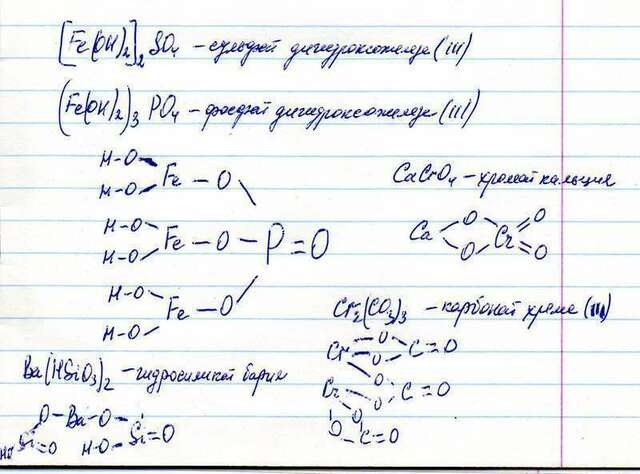 [Fe(OH)₂]₂SO₄ – сульфат дигидроксожелеза (III)
(Fe(OH)₂)₃ PO₄ – фосфат дигидроксожелеза (III)
H-O
H-O Fe – O
H-O
H-O Fe – O – P = O
H-O
H-O Fe – O
CaCrO₄ – хромат кальция
Ca O O Cr O O
Cr₂(CO₃)₃ – карбонат хрома (III)
Cr O O C = O
Cr O O C = O
O O C = O
Ba(HSiO₃)₂ – гидросиликат бария
O – Ba – O
HO Si = O H-O Si = O